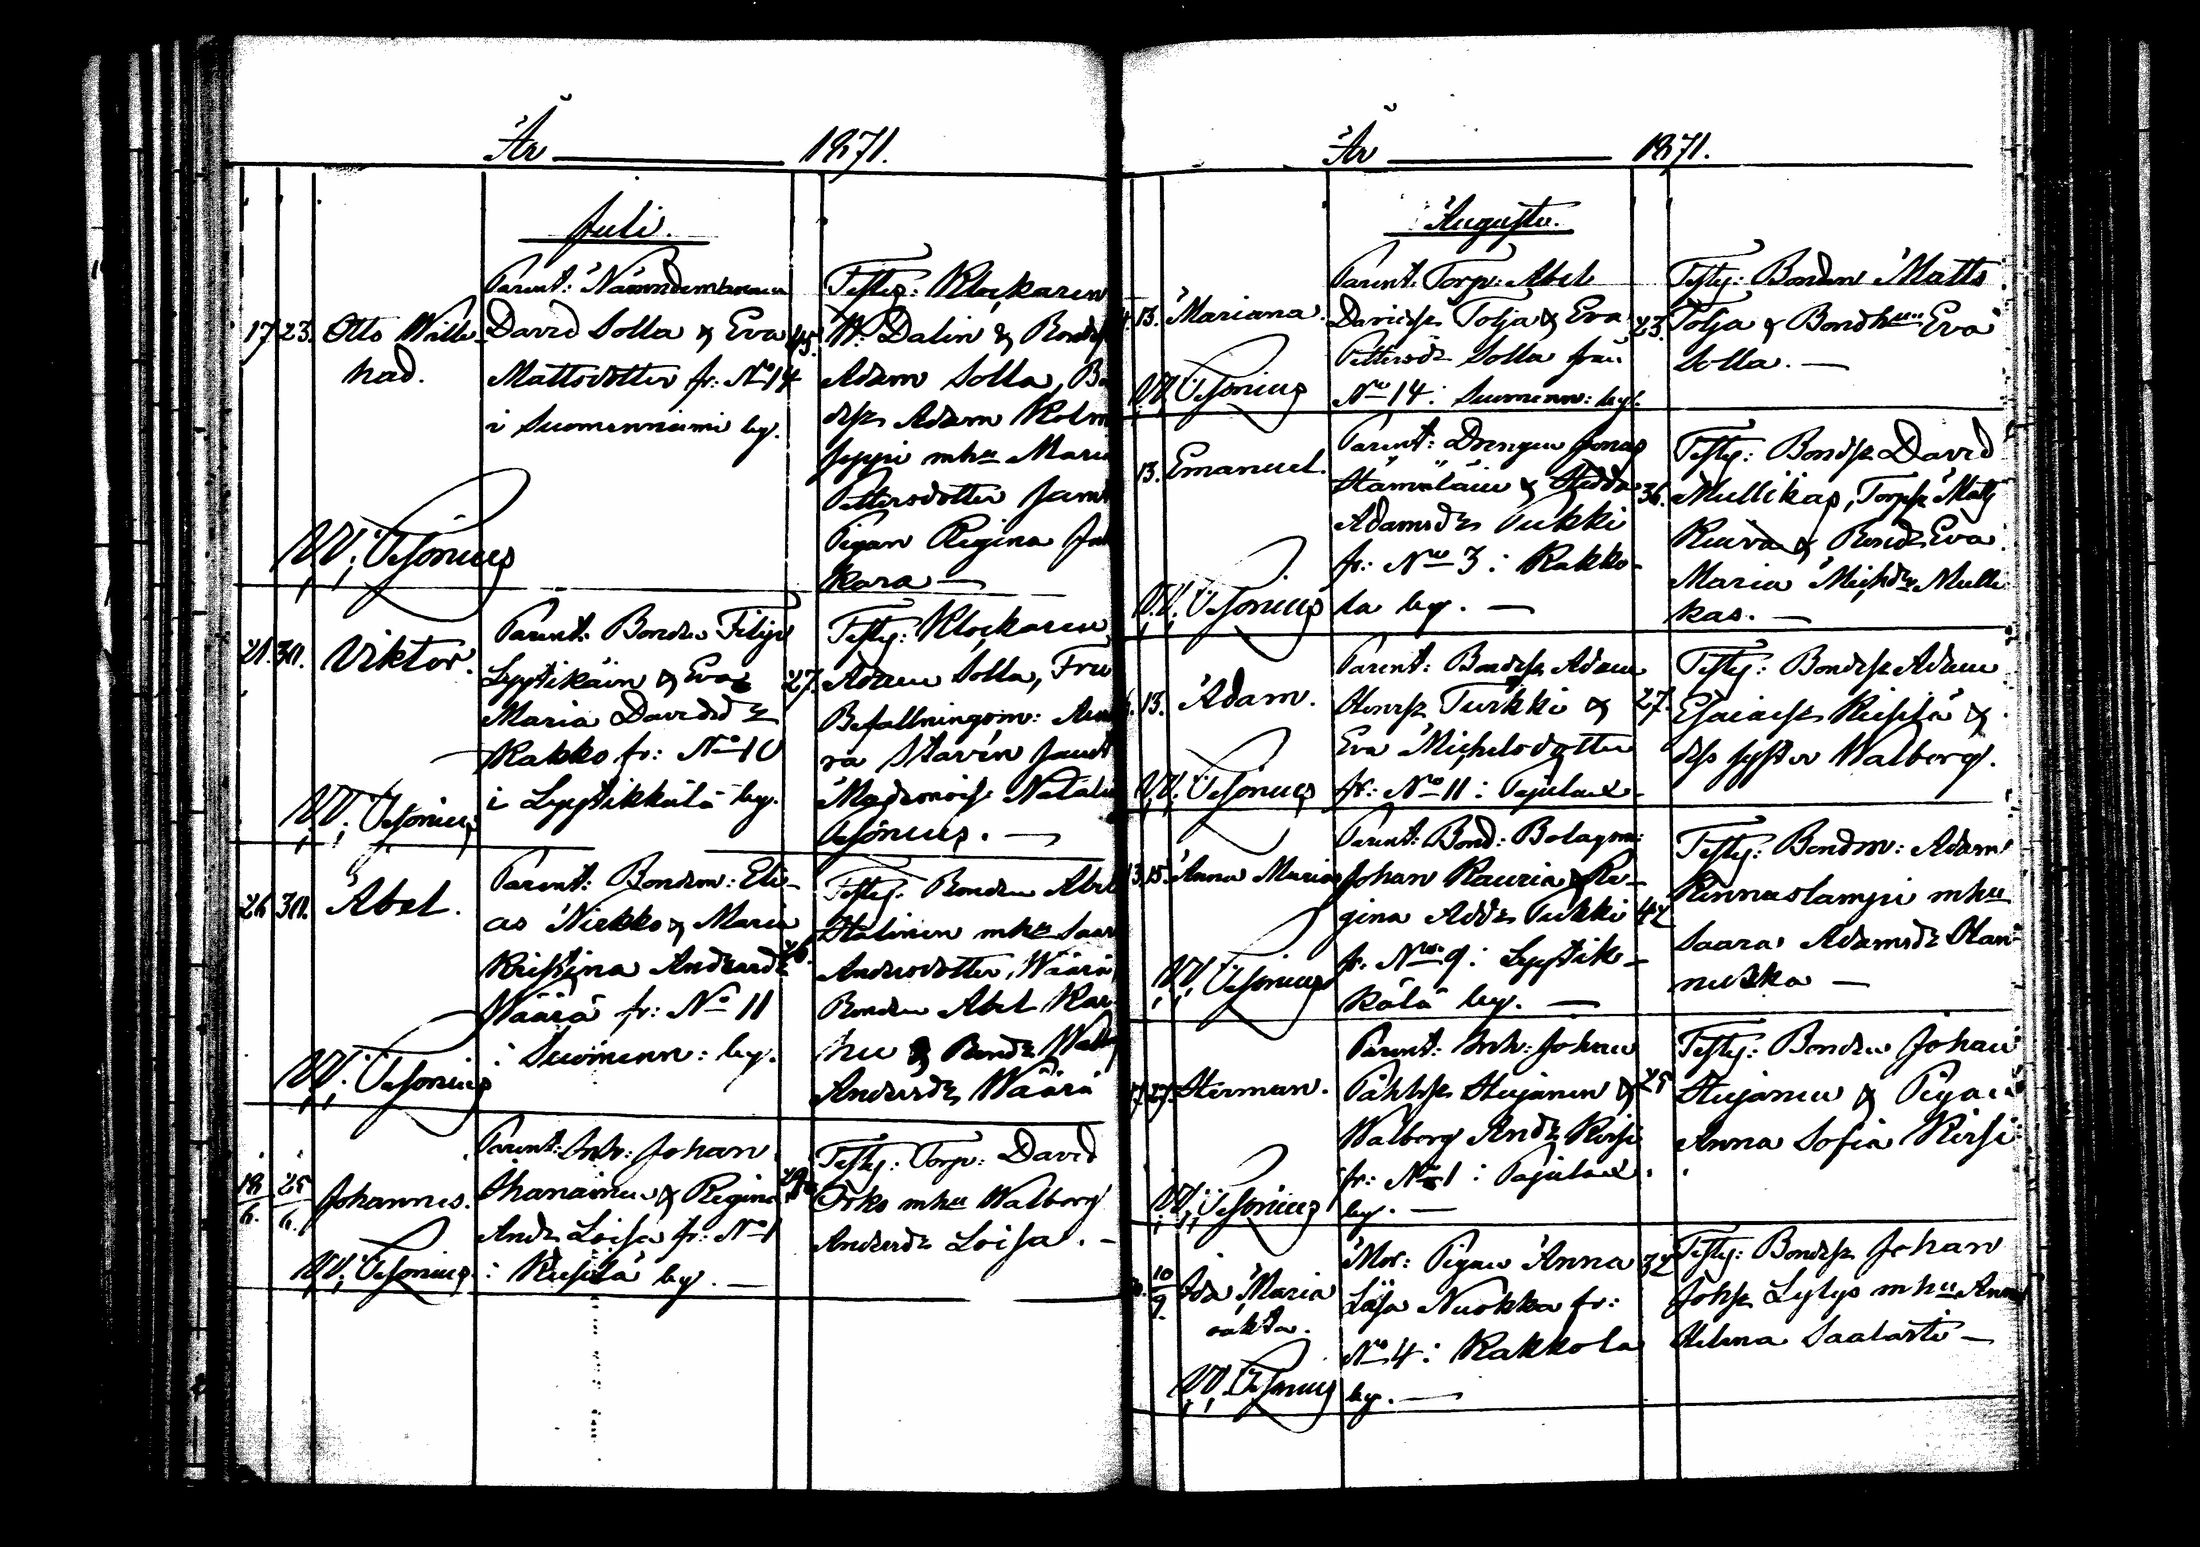 År 1871.
Juli.
17 23. Otto Wille-
had.
Parent: Nämndemannen
David Solla & Eva
Mattsdotter fr: No 14
i Suomenniemi by.
45.
Testes: Klockaren
W. Dalin &
Adam Solla,
Adam
mhu
Pettersdotter
Pigan Regina
kara —
W. Vesonius
21. 30. Viktor.
Parent: Bonden Filip
Lyytikäin & Eva
Maria Davidsdr
Rakko fr: No 10
i Lyytikkälä by.
27.
Testes: Klockaren
Adam Solla, Fru
Befallningsm:
W. Vesonius
Vesonius. —
26 30. Abel.
Parent: Bondem: Eli-
as Nirkko & Maria
Kristina Andersdr
Väärä fr: No 11
i Suomenn: by.
Testes: Bonden Abel
mhu
Andersdotter, Wäärä
Bonden Abel
Andersdr Wäärä
W. Vesonius
18/6. 25/6. Johannes.
Parent: Inh: Johan
& Regina
Andr Loisa fr: No 1
i by. —
Testes: Torp: David
Orko mhu Walborg
Andersdr Loisa. —
W. Vesonius
År 1871.
Augusti.
13. Mariana.
Parent: Torp: Abel
Davidss Tolja & Eva
Pettersdr Solla från
No 14 i Suomenn: by.
23.
Testes: Bonden Matts
Tolja & Bondhun Eva
Solla. —
W. Vesonius
13. Emanuel.
Parent: Drengen Jonas
Hämäläin & Hedda
Adamsdr Tukki
fr: No 3 i Rakko-
la by. —
36.
Testes: Bondss David
Mullikas, Torpss Matts
& Bondr Eva
Maria Michdr Mulli
kas. —
W. Vesonius
13. Adam.
Parent: Bondess Adam
Henrss Turkki &
Eva Michelsdotter
fr: No 11 i Pajulax
27.
Testes: Bondss Adam
Esaiass &
dess syster Walborg.
W. Vesonius
13 15. Anna Maria
Parent: Bond: Bolagsm:
Johan Rauria & Re-
gina Addr Tukki
fr. No 9 i Lyytik-
kälä by. —
42
Testes: Bondm: Adam
Kinnaslampi mhu
Saara Adamsdr Han-
nukka —
W. Vesonius
17 27. Herman.
Parent: Inh: Johan
Påhlss Heijanen &
Walborg Andr Kirsi
fr: No 1 i Pajulax
by. —
25
Testes: Bonden Johan
Heijanen & Pigan
Anna Sofia Kirsi
W. Vesonius
10/9. Ida Maria
oäkta.
Mor: Pigan Anna
Lisa Nuokka fr:
No 4 i Rakkola
by. —
32
Testes: Bondess Johan
Johss Lylys mhu Anna
Helena Saalasti —
W. Vesonius